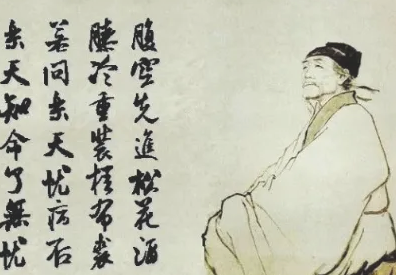 腹空先進松花酒
膝冷重裝桂布裘
若問樂天憂病否
樂天知命了無憂